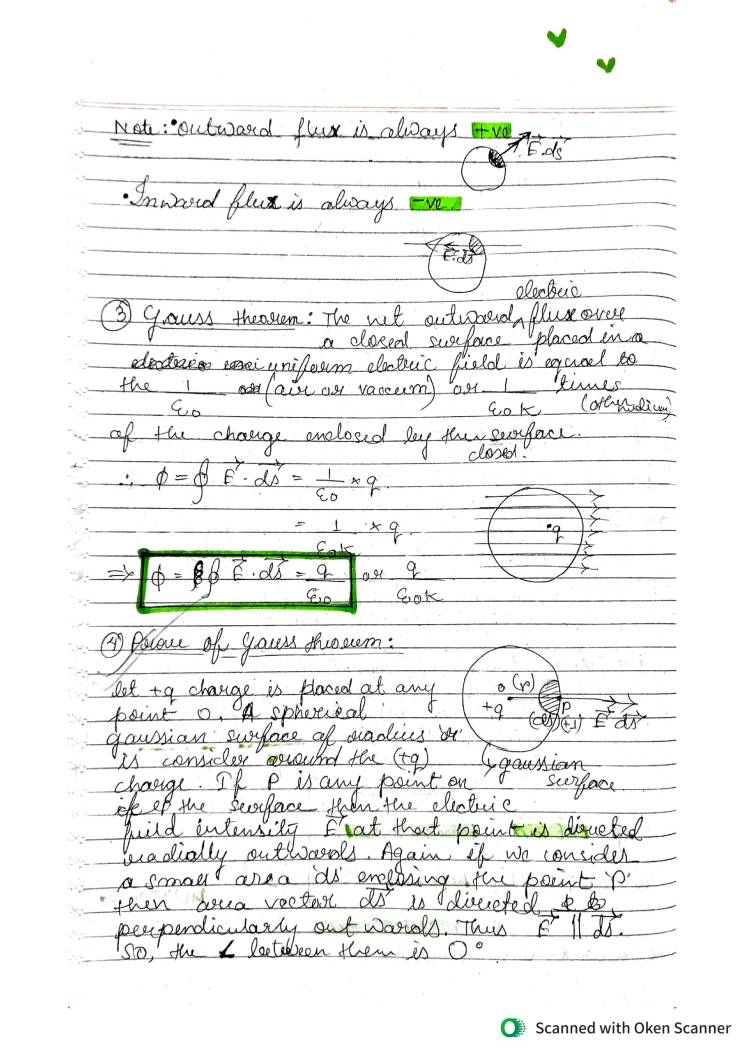 Note: • outward flux is always +ve
E⃗.ds⃗
• Inward flux is always -ve.
E⃗.ds⃗
electric
③ Gauss theorem: The net outward ^ flux over
a closed surface placed in a
uniform electric field is equal to
the 1/ε₀ (air or vaccum) or 1/ε₀K times
(other medium)
of the charge enclosed by the surface.
closed.
∴ ϕ = ∮ E⃗ · ds⃗ = 1/ε₀ × q.
= 1/ε₀K × q.
•q
⇒ ϕ = ∮ E⃗ · ds⃗ = q/ε₀ or q/ε₀K
④ Prove of Gauss theorem:
let +q charge is placed at any
point O. A spherical
gaussian surface of radius 'r'
is consider around the (+q)
charge. If P is any point on
the surface then the electric
feild intensity E⃗ at that point is directed
radially outwards. Again if we consider
a small area 'ds' enclosing the point 'P'
then area vector ds⃗ is directed
perpendicularly outwards. Thus E⃗ || ds⃗.
So, the ∠ between them is 0°
o (r)
+q
P
(ds) (+1) E⃗ ds⃗
↳ gaussian
surface
Scanned with Oken Scanner